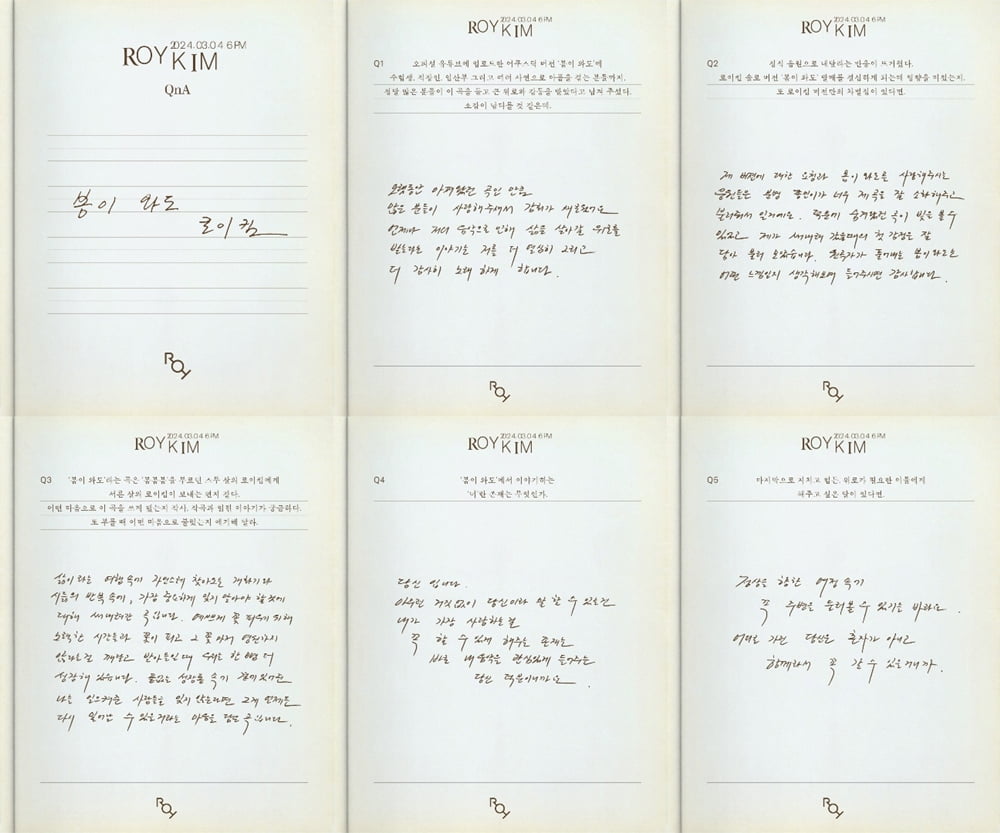 ROY KIM
2024.03.04 6PM
QnA
봄이 와도
로이킴
ROY
ROY KIM
2024.03.04 6PM
Q1
오피셜 유튜브에 업로드한 어쿠스틱 버전 '봄이 와도'에
수험생, 직장인, 임산부 그리고 여러 사연으로 아픔을 겪는 분들까지,
정말 많은 분들이 이 곡을 듣고 큰 위로와 감동을 받았다고 남겨 주셨다.
소감이 남다를 것 같은데.
오랫동안 아껴왔던 곡인 만큼
많은 분들이 사랑해주셔서 감회가 새로웠어요
언제나 저의 음악으로 인해 삶을 살아갈 위로를
받는다는 이야기는 저를 더 열심히 그리고
더 감사히 노래 하게 합니다.
ROY
ROY KIM
2024.03.04 6PM
Q2
정식 음원으로 내달라는 반응이 뜨거웠다.
로이킴 솔로 버전 '봄이 와도' 발매를 결심하게 되는데 영향을 미쳤는지.
또 로이킴 버전만의 차별점이 있다면.
제 버전에 대한 요청과 봄이 와도를 사랑해주시는
응원들은 분명 종인이가 너무 제 곡을 잘 소화해주고
불러줘서 인거예요. 덕분에 숨겨왔던 곡이 빛을 볼 수
있었고 제가 써내려 갔을때의 첫 감정을 잘
담아 불러 보았습니다. 원곡자가 풀어내는 봄이 와도는
어떤 느낌인지 생각해보며 들어주시면 감사합니다.
ROY
ROY KIM
2024.03.04 6PM
Q3
'봄이 와도'라는 곡은 '봄봄봄'을 부르던 스무 살의 로이킴에게
서른 살의 로이킴이 보내는 편지 같다.
어떤 마음으로 이 곡을 쓰게 됐는지 작사, 작곡과 얽힌 이야기가 궁금하다.
또 부를 때 어떤 마음으로 불렀는지 얘기해 달라.
삶이라는 여행 속에 자연스레 찾아오는 개화기와
시듦의 반복 속에, 가장 중요하게 잊지 말아야 할 것에
대해 써내려간 곡입니다. 예쁘게 꽃 피우기 위해
노력한 시간들과 꽃이 피고 그 꽃 마저 영원하지
않다는걸 깨닫고 받아들인 때 우리는 한 뼘 더
성장해 있습니다. 끊임없는 성장통 속에 곁에 있어준
나를 일으켜준 사람들을 잊지 않는다면 그게 언제든
다시 일어날 수 있을거라는 마음을 담은 곡입니다.
ROY
ROY KIM
2024.03.04 6PM
Q4
'봄이 와도'에서 이야기하는
'너'란 존재는 무엇인가.
당신 입니다.
아무런 거짓없이 당신이라 말 할 수 있는건
내가 가장 사랑하는걸
꼭 할 수 있게 해주는 존재는
바로 내 음악을 관심있게 들어주는
당신 덕분이니까요.
ROY
ROY KIM
2024.03.04 6PM
Q5
마지막으로 지치고 힘든, 위로가 필요한 이들에게
해주고 싶은 말이 있다면.
정상을 향한 여정 속에
꼭 주변을 둘러볼 수 있기를 바라요.
어디로 가든 당신은 혼자가 아니고
함께라서 꼭 갈 수 있을거예요.
ROY